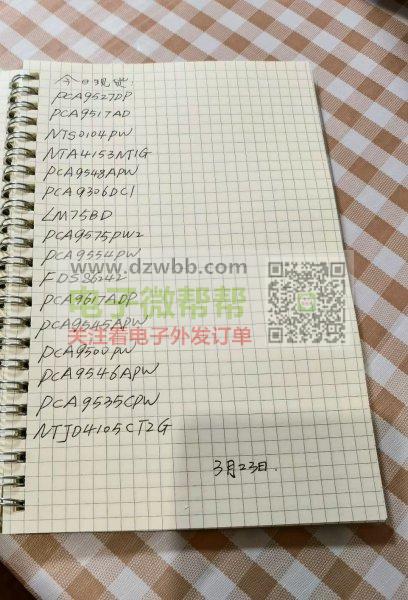 今日现货
PCA9527DP
PCA9517AD
NTS0104PW
NTA4153NT1G
PCA9548APW
PCA9306DC1
LM75BD
PCA9575PW2
PCA9554PW
www.dzwbb.com
FDS86242
电子微帮帮
PCA9617ADP
关注看电子外发订单
PCA9545APW
PCA9500PW
PCA9546APW
PCA9535CPW
NTJD4105CT2G
3月23日.